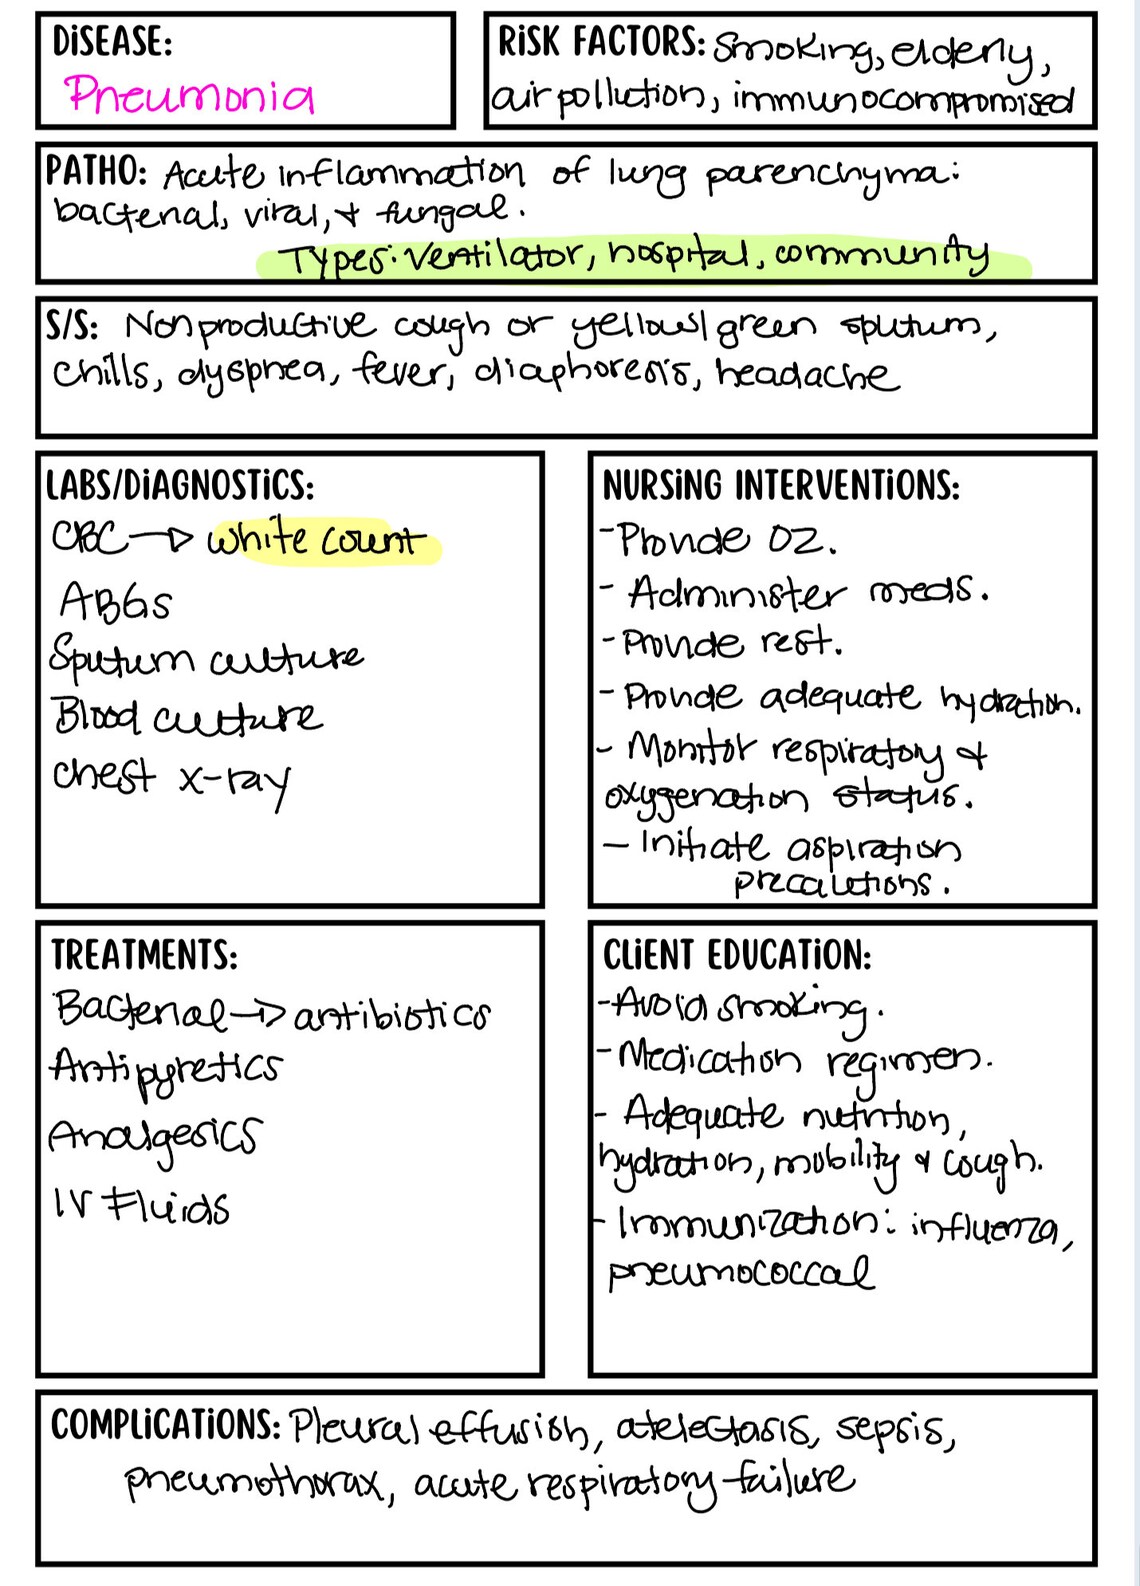 DiSEASE:
Pneumonia
RiSK FACTORS: Smoking, elderly,
air pollution, immunocompromised
PATHO: Acute inflammation of lung parenchyma:
bacterial, viral, + fungal.
Types: Ventilator, hospital, community
S/S: Nonproductive cough or yellow/green sputum,
chills, dyspnea, fever, diaphoresis, headache
LABS/DiAGNOSTiCS:
CBC → white count
ABGs
Sputum culture
Blood culture
chest x-ray
NURSiNG INTERVENTiONS:
- Provide O2.
- Administer meds.
- Provide rest.
- Provide adequate hydration.
- Monitor respiratory +
oxygenation status.
- Initiate aspiration
precautions.
TREATMENTS:
Bacterial → antibiotics
Antipyretics
Analgesics
IV Fluids
CLiENT EDUCATiON:
- Avoid smoking.
- Medication regimen.
- Adequate nutrition,
hydration, mobility + cough.
- Immunization: influenza,
pneumococcal
COMPLiCATiONS: Pleural effusion, atelectasis, sepsis,
pneumothorax, acute respiratory failure